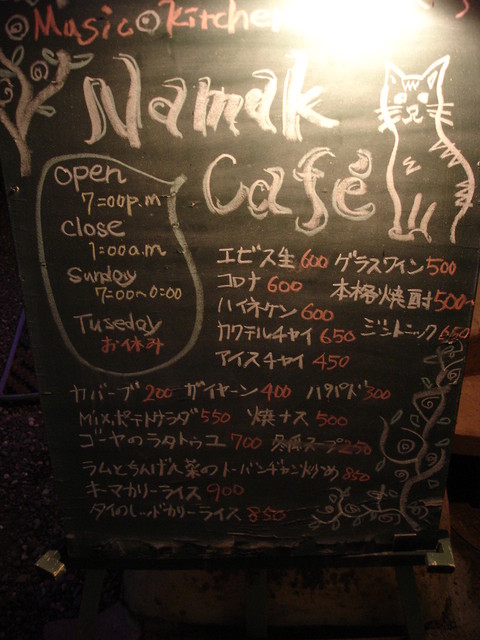 Music Kitchen
Namak
Café
Open
7:00p.m
Close
1:00a.m
Sunday
7:00〜0:00
Tuseday
お休み
エビス生 600 グラスワイン 500
コロナ 600 本格焼酎 500〜
ハイネケン 600
カクテルチャイ 650 ジントニック 650
アイスチャイ 450
カバーブ 200 ザイヤーン 400 パパド 300
Mixポテトサラダ 550 焼ナス 500
ゴーヤのラタトゥユ 700 冬瓜スープ 250
ラムとちんげん菜のトーバンヂャン炒め 850
キーマカリーライス 900
タイのレッドカリーライス 850